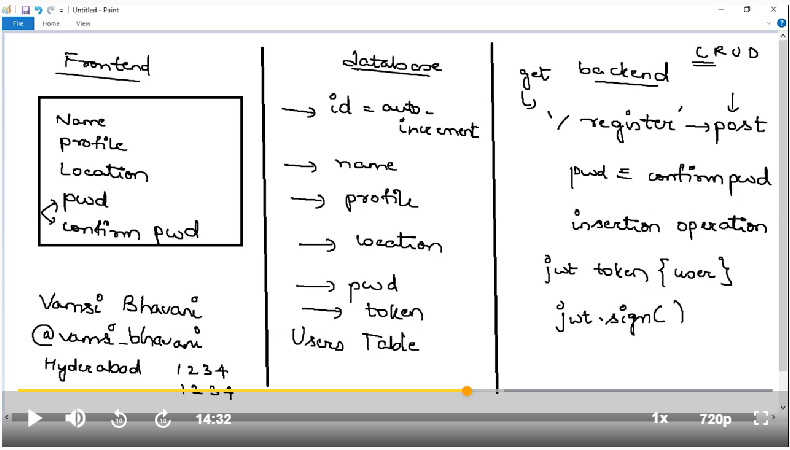 Untitled - Paint
File Home View
Frontend
Name
Profile
Location
pwd
confirm pwd
Vamsi Bhavani
@vamsi_bhavani
Hyderabad 1 2 3 4
1 2 3 4
database
id = auto-
increment
name
profile
location
pwd
token
Users Table
CRUD
get backend
'/register' → post
pwd = confirm pwd
insertion operation
jwt token {user}
jwt.sign()
10 10 14:32 1x 720p